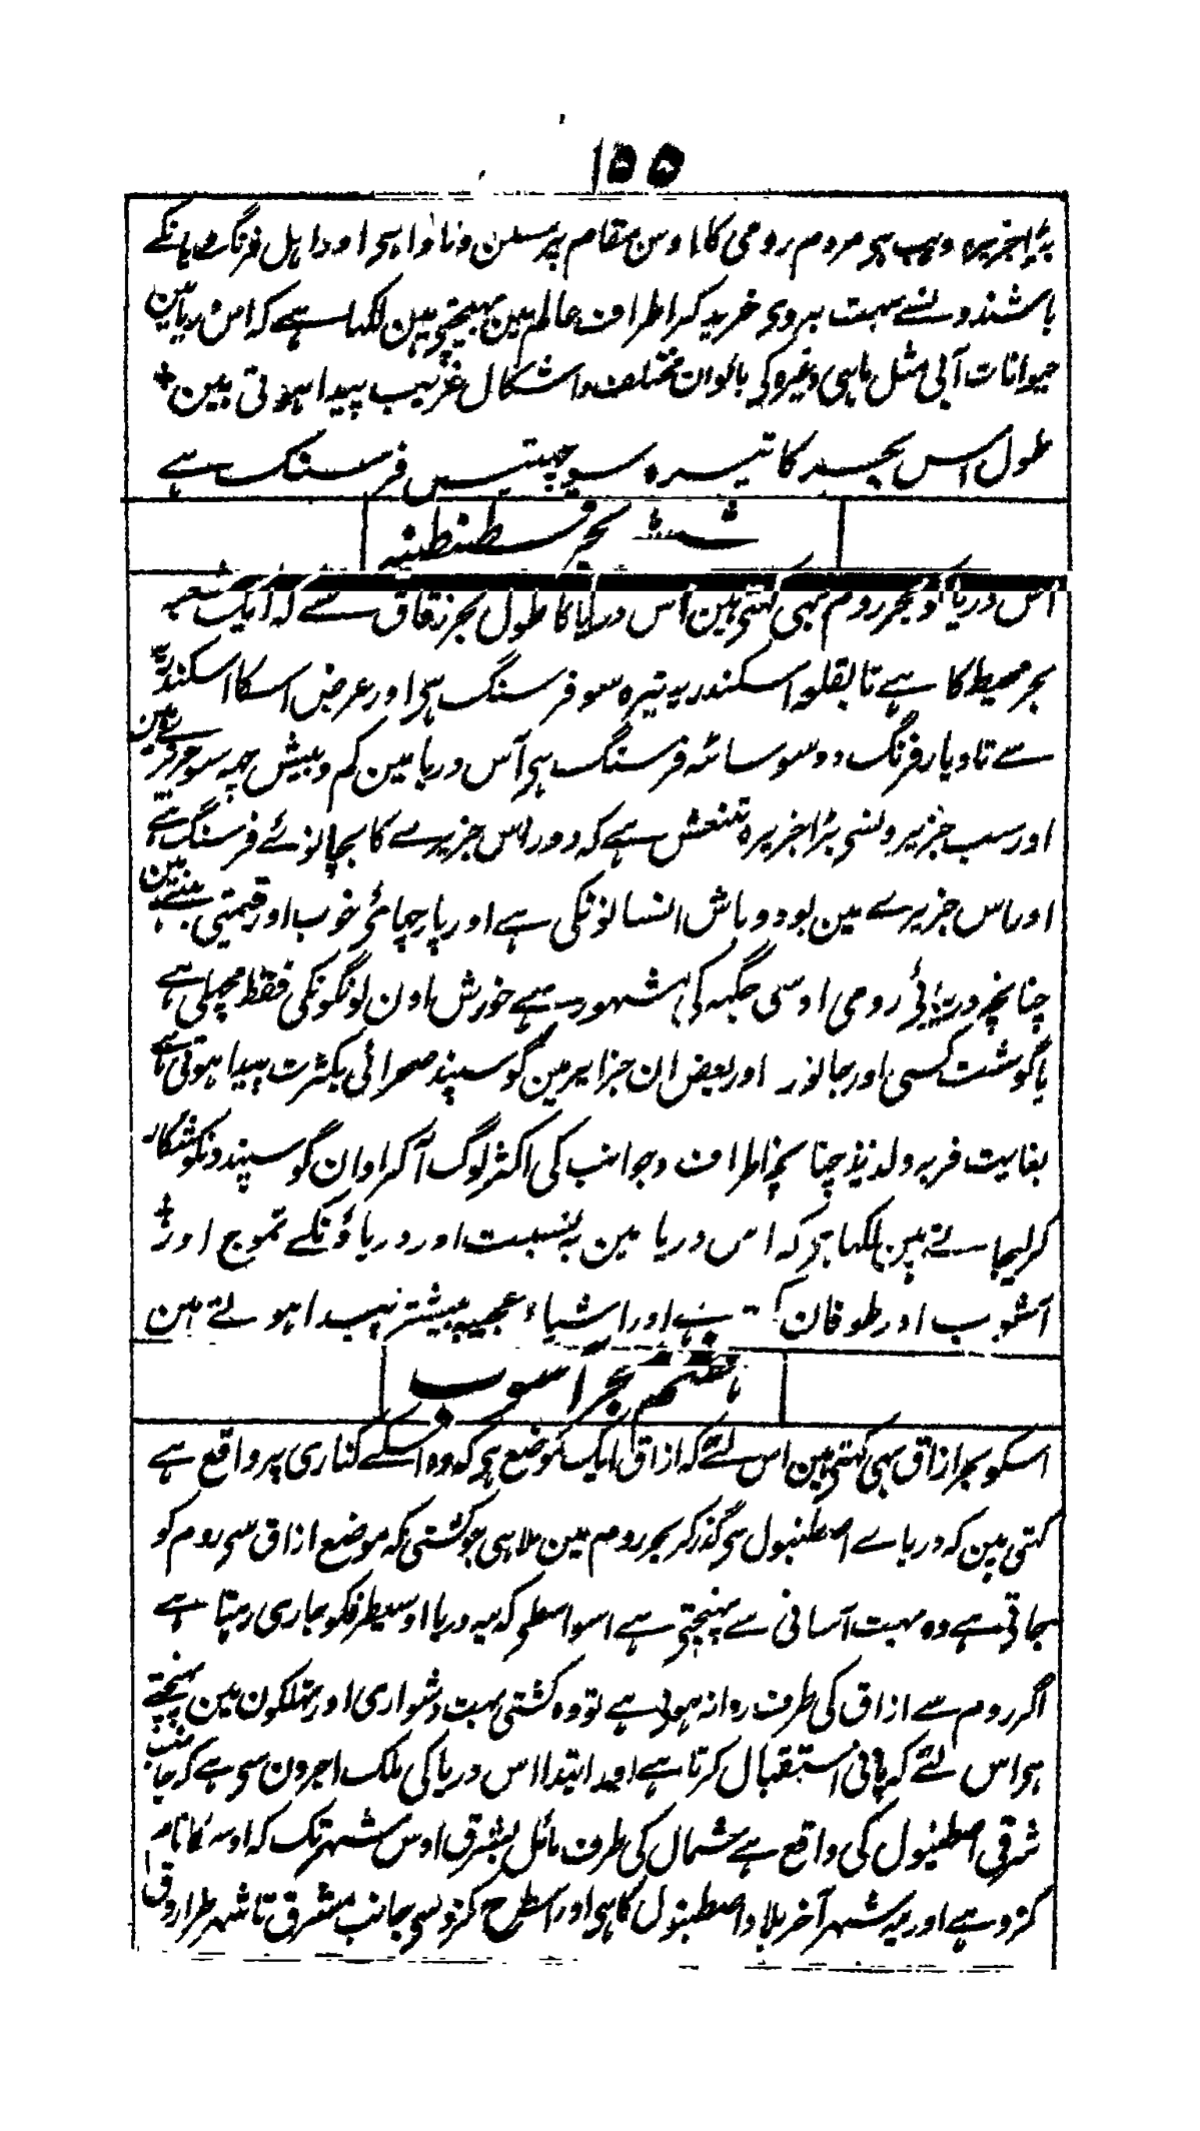 ۱۵۵
بڑا جزیرہ وہی ہی مردم رومی کا اوس مقام پر مسکن و ماوا ہی اور اہل فرنگ وہانکے
باشندونسے بہت بردی خرید کر اطراف عالم مین بہیجتی ہین لکہا ہے کہ اس دریا مین
حیوانات آبی مثل ماہی وغیرہ کی بالوان مختلف و اشکال غریب پیدا ہوتی ہین
طول اس بحر کا تیرہ سو فرسنگ ہے
ششم بحر قسطنطنیہ
اس دریا کو بحر روم بہی کہتی ہین اس دریا کا طول بحر زقاق سے کہ ایک شعبہ
بحر محیط کا ہے تا بقلعہ اسکندریہ تیرہ سو فرسنگ ہی اور عرض اسکا اسکندریہ
سے تا دیار فرنگ دو سو ساٹہ فرسنگ ہی اس دریا مین کم و بیش چہ سو جزیرے ہین
اور سب جزیرونسی بڑا جزیرہ ہے کہ دور اس جزیرے کا پچانوے فرسنگ ہے
اور اس جزیرے مین بود و باش انسانونکی ہے اور پارچائی خوب اور قیمتی بنتے ہین
چنانچہ دریائی رومی اوسی جگہہ کی مشہور ہے خورش اون لوگونکی فقط مچہلی ہے
یا گوشت کسی اور جانور اور بعض ان جزایر مین گوسپند صحرائی بکثرت پیدا ہوتی ہے
بغایت فربہ و لذیذ چنانچہ اطراف و جوانب کی اکثر لوگ آکر اوان گوسپندونکو شکار
کر لیجاتے ہین لکہا ہی کہ اس دریا مین بہ نسبت اور دریاؤنکے تموج اور
آشوب اور طوفان ہے اور اشیاء عجیبہ بیشتر پیدا ہوتے ہین
ہفتم بحر اسوب
اسکو بحر ازاق بہی کہتی ہین اس لئے کہ ازاق ایک موضع ہی کہ وہ اسکے کناری پر واقع ہے
کہتی ہین کہ دریاے اصطنبول سی گذر کر بحر روم مین ملا ہی جو کشتی کہ موضع ازاق سی روم کو
جاتی ہے وہ بہت آسانی سے پہنچتی ہے اسواسطی کہ یہ دریا اوسیطرفکو جاری رہتا ہے
اگر روم سے ازاق کی طرف روانہ ہوتی ہے تو وہ کشتی بہت دشواری اور تہلکون مین پہنچتے
ہی اس لئے کہ پانی استقبال کرتا ہے اور ابتدا اس دریا کی ملک اجرون سی ہے کہ جانب
شرقی اصطنبول کی واقع ہے شمال کی طرف مائل بشرق اوس شہر تک کہ اوسکا نام
کزو ہے اور یہ شہر آخر بلاد اصطنبول کا ہی اور اسطرح کزو سی جانب مشرق تا شہر